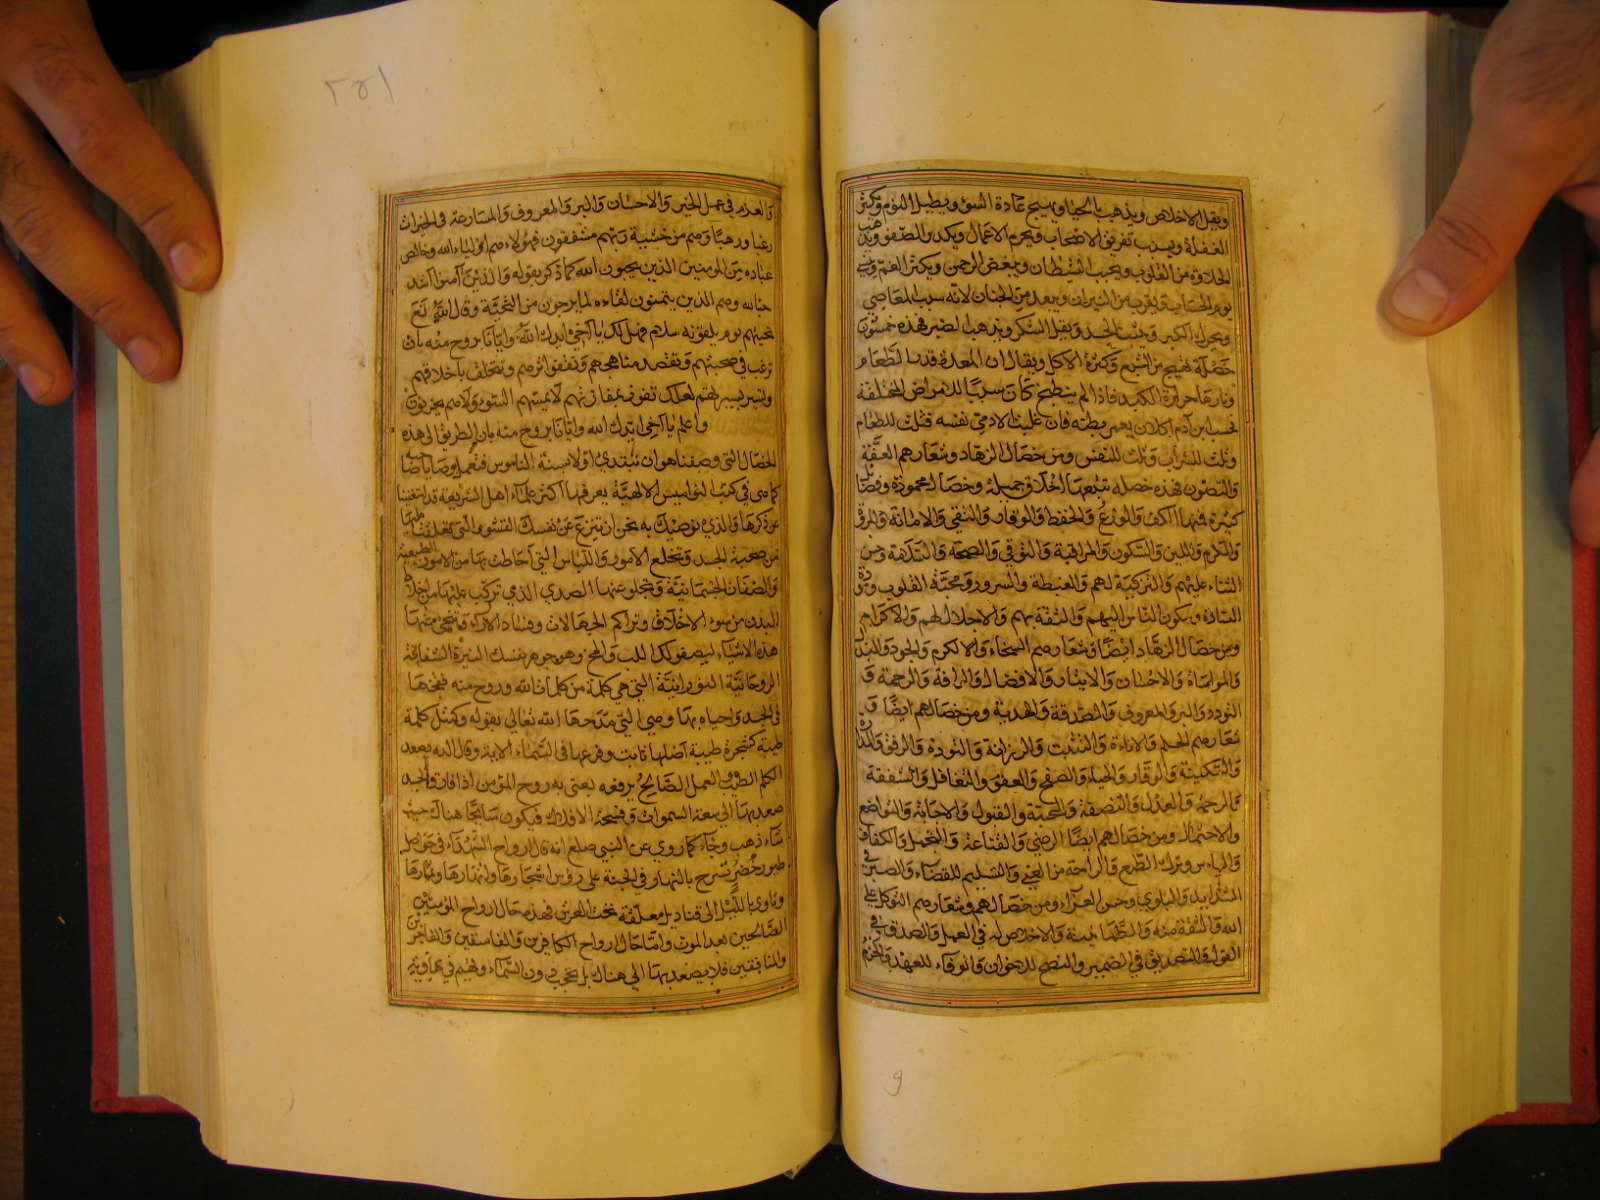 ويقل الاخلاص ويذهب بالحياء ويهيج عادة السوء ويطيل النوم ويكثر
الغفلة ويسبب تفريق الاصحاب ويحرم الاعمال ويكدر الصفو ويذهب
الحلاوة من القلوب ويحبب الشيطان ويبغض الرحمن ويكثر الغم
يوم الحساب ويقرب من النيران ويبعد من الجنان لانه سبب المعاصي
ويحرك الكبر ويقل الشكر ويذهب الصبر فهذه خمسون
خصلة تهيج من الشبع وكثرة الاكل ويقال ان المعدة قدر الطعام
ونارها حرارة الكبد فاذا لم ينطبخ كان سببا للامراض المختلفة
بحسب ابن آدم اكلات فان غلبت الادمى نفسه فثلث للطعام
وثلث للشراب وثلث للنفس ومن خصال الزهاد وشعارهم العفة
والتصون فهذه خصله تتبعها اخلاق جميلة وخصال محمودة وفضائل
كثيرة فمنها الكف والورع والحفظ والوقار والتقى والامانة والمروة
والكرم واللين والسكون والمراقبة والتوقي والصحة والنزاهة وحسن
الثناء عليهم والتزكية لهم والغبطة والسرور ومحبة القلوب
السادة وسكون الناس اليهم والثقة بهم والاجلال لهم والاكرام
ومن خصال الزهاد ايضا وشعارهم السخاء والكرم والجود والبذل
والمواساة والاحسان والايثار والافضال والرافة والرحمة و
التودد والبر والمعروف والصدقة والهدية ومن خصالهم ايضا و
شعارهم الحلم والاناءة والتثبت والرزانة والتودة والرفق
والسكينة والوقار والحياء والصفح والعفو والتغافل والشفقة
والرحمة والعدل والنصفة والمحبة والقبول والاجابة والتواضع
والاحتمال ومن خصالهم ايضا الرضى والقناعة والتجمل والكفاف
والياس وترك الطمع والراحة من العنى والتسليم للقضاء والصبر في
الشدايد والبلوى وحسن العزاء ومن خصالهم وشعارهم التوكل على
الله والثقة منه والطمانينة والاخلاص له في العمل والصدق في
القول والتصديق في الضمير والنصح للاخوان والوفاء للعهد والحزم
٢٥١
والعزم في عمل الخير والاحسان والبر والمعروف والمسارعة في الخيرات
رغبا ورهبا وهم من خشية ربهم مشفقون فهؤلاء هم اولياء الله وخالص
عباده من المومنين الذين يحبون الله كما ذكر بقوله والذين آمنوا اشد
حبا لله وهم الذين يتمنون لقاءه لما يرجون من التحية وقال الله تع
تحيتهم يوم يلقونه سلام فهل لك يا اخي ايدك الله وايانا بروح منه بان
ترغب في صحبتهم وتقصد مناهجهم وتقفوا اثرهم وتتخلق باخلاقهم
وتسير بسيرتهم لعلك تفوز بمفازتهم لا يمسهم السوء ولا هم يحزنون
واعلم يا اخى ايدك الله وايانا بروح منه بان الطريق الى هذه
الخصال التى وصفناها هو ان تبتدى اولا بسنة الناموس فتعمل بوصايا صاحبه
كما هى في كتب النواميس الالهية يعرفها اكثر علماء اهل الشريعة قد استغنينا
عن ذكرها والذي نوصيك به نحن ان تنزع عن نفسك القشور التى تعلقت عليها
من صحبة الجسد وتخلع الامور واللباس التي احاطت بها من الامور الطبيعية
والصفات الجسمانية وتجلو عنها الصدي الذي تركب عليها من اخلاط
البدن من سوء الاخلاق وتراكم الجهالات وفساد الاراء وتنحى عنها
هذه الاشياء ليصفو لك اللب والمخ وهو جوهر نفسك النيرة الشفافة
الروحانية النورانية التي هي كلمة من كلمات الله وروح منه نفخها
في الجسد واحياه بها وهى التي مدحها الله تعالي بقوله وكمثل كلمة
طيبة كشجرة طيبة اصلها ثابت وفرعها في السماء الاية وقال اليه يصعد
الكلم الطيب والعمل الصالح يرفعه يعنى به روح المؤمن اذا فارق الجسد
صعد بها الى سعة السموات وفسحة الافلاك فيكون سائحا هناك حيث
شاء ذهب وجاء كما روي عن النبي صلعم انه قال ارواح الشهداء في حواصل
طيور خضر تسرح بالنهار في الجنة على رؤس اشجارها وانهارها وثمارها
وتاوي بالليل الى قناديل معلقة تحت العرش فهذه حال ارواح المؤمنين
الصالحين بعد الموت واما حال ارواح الكافرين والفاسقين والفاجرين
والمنافقين فلا يصعد بها الى هناك بل يحجب دون السماء